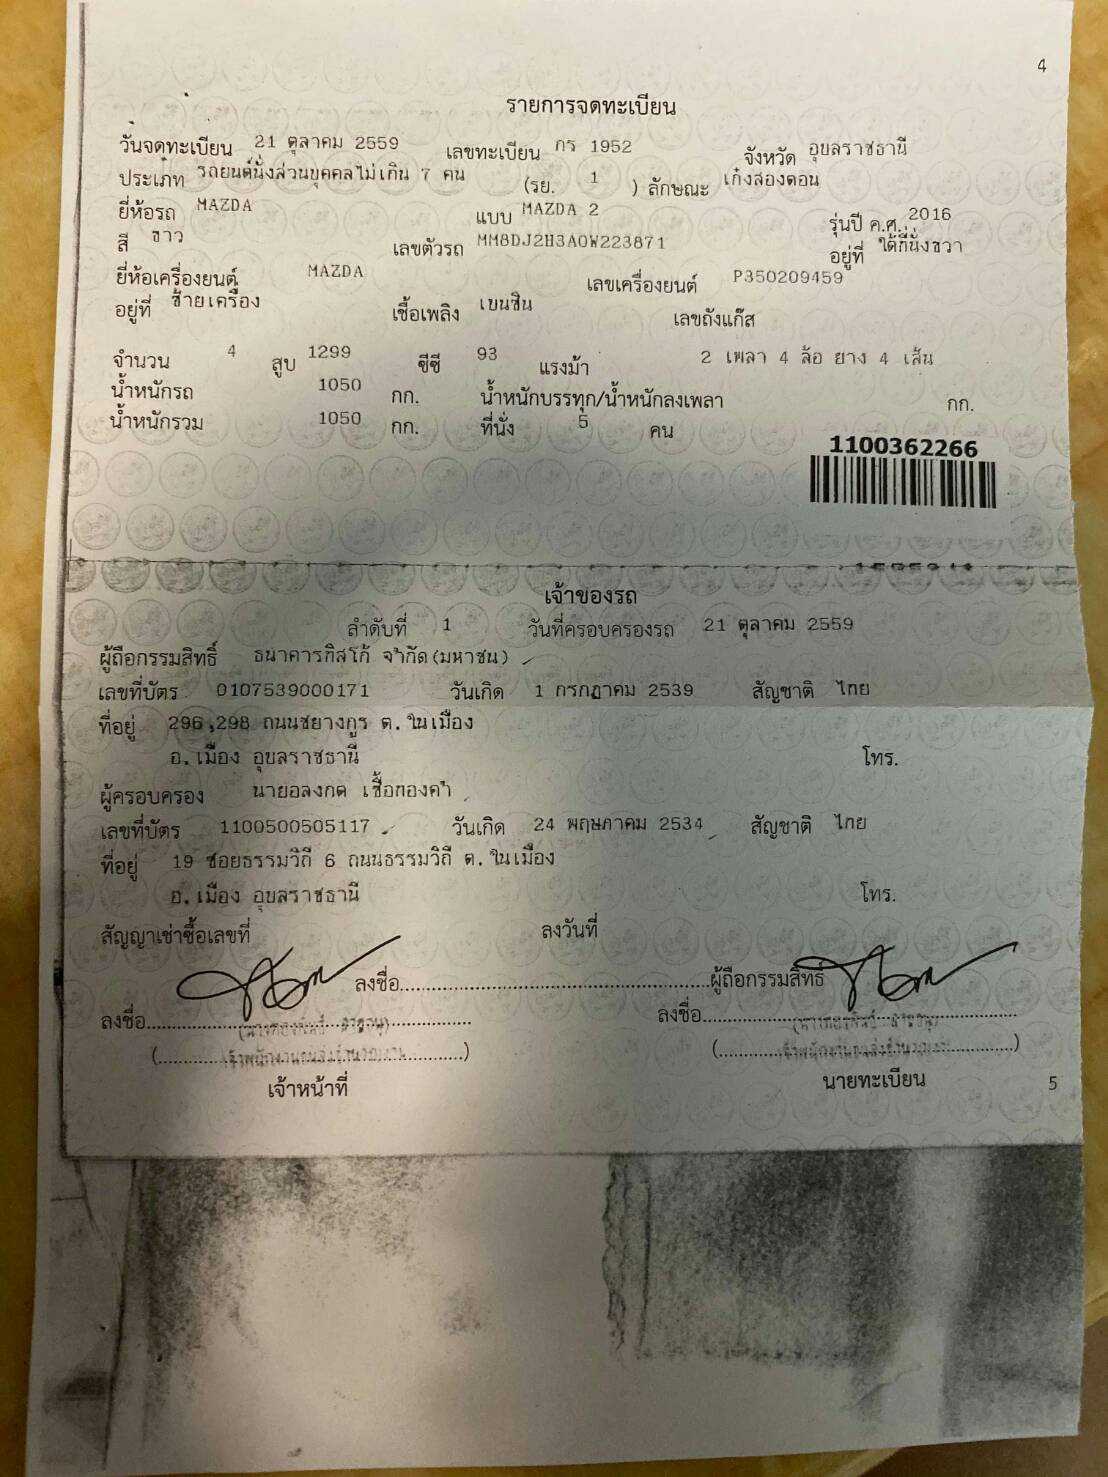 4
รายการจดทะเบียน
วันจดทะเบียน 21 ตุลาคม 2559 เลขทะเบียน กร 1952 จังหวัด อุบลราชธานี
ประเภท รถยนต์นั่งส่วนบุคคลไม่เกิน 7 คน (รย. 1 ) ลักษณะ เก๋งสองตอน
ยี่ห้อรถ MAZDA แบบ MAZDA 2 รุ่นปี ค.ศ. 2016
สี ขาว เลขตัวรถ MM8DJ2H3A0W223871 อยู่ที่ ใต้ที่นั่งขวา
ยี่ห้อเครื่องยนต์ MAZDA เลขเครื่องยนต์ P350209459
อยู่ที่ ซ้ายเครื่อง เชื้อเพลิง เบนซิน เลขถังแก๊ส
จำนวน 4 สูบ 1299 ซีซี 93 แรงม้า 2 เพลา 4 ล้อ ยาง 4 เส้น
น้ำหนักรถ 1050 กก. น้ำหนักบรรทุก/น้ำหนักลงเพลา กก.
น้ำหนักรวม 1050 กก. ที่นั่ง 5 คน
1100362266
เจ้าของรถ
ลำดับที่ 1 วันที่ครอบครองรถ 21 ตุลาคม 2559
ผู้ถือกรรมสิทธิ์ ธนาคารทิสโก้ จำกัด(มหาชน)
เลขที่บัตร 0107539000171 วันเกิด 1 กรกฎาคม 2539 สัญชาติ ไทย
ที่อยู่ 296,298 ถนนชยางกูร ต.ในเมือง
อ.เมือง อุบลราชธานี โทร.
ผู้ครอบครอง นายอลงกต เชื้อทองคำ
เลขที่บัตร 1100500505117 วันเกิด 24 พฤษภาคม 2534 สัญชาติ ไทย
ที่อยู่ 19 ซอยธรรมวิถี 6 ถนนธรรมวิถี ต.ในเมือง
อ.เมือง อุบลราชธานี โทร.
สัญญาเช่าซื้อเลขที่ ลงวันที่
ลงชื่อ....................ผู้ถือกรรมสิทธิ์
ลงชื่อ.................... ลงชื่อ....................
(....................) (....................)
เจ้าหน้าที่ นายทะเบียน
5